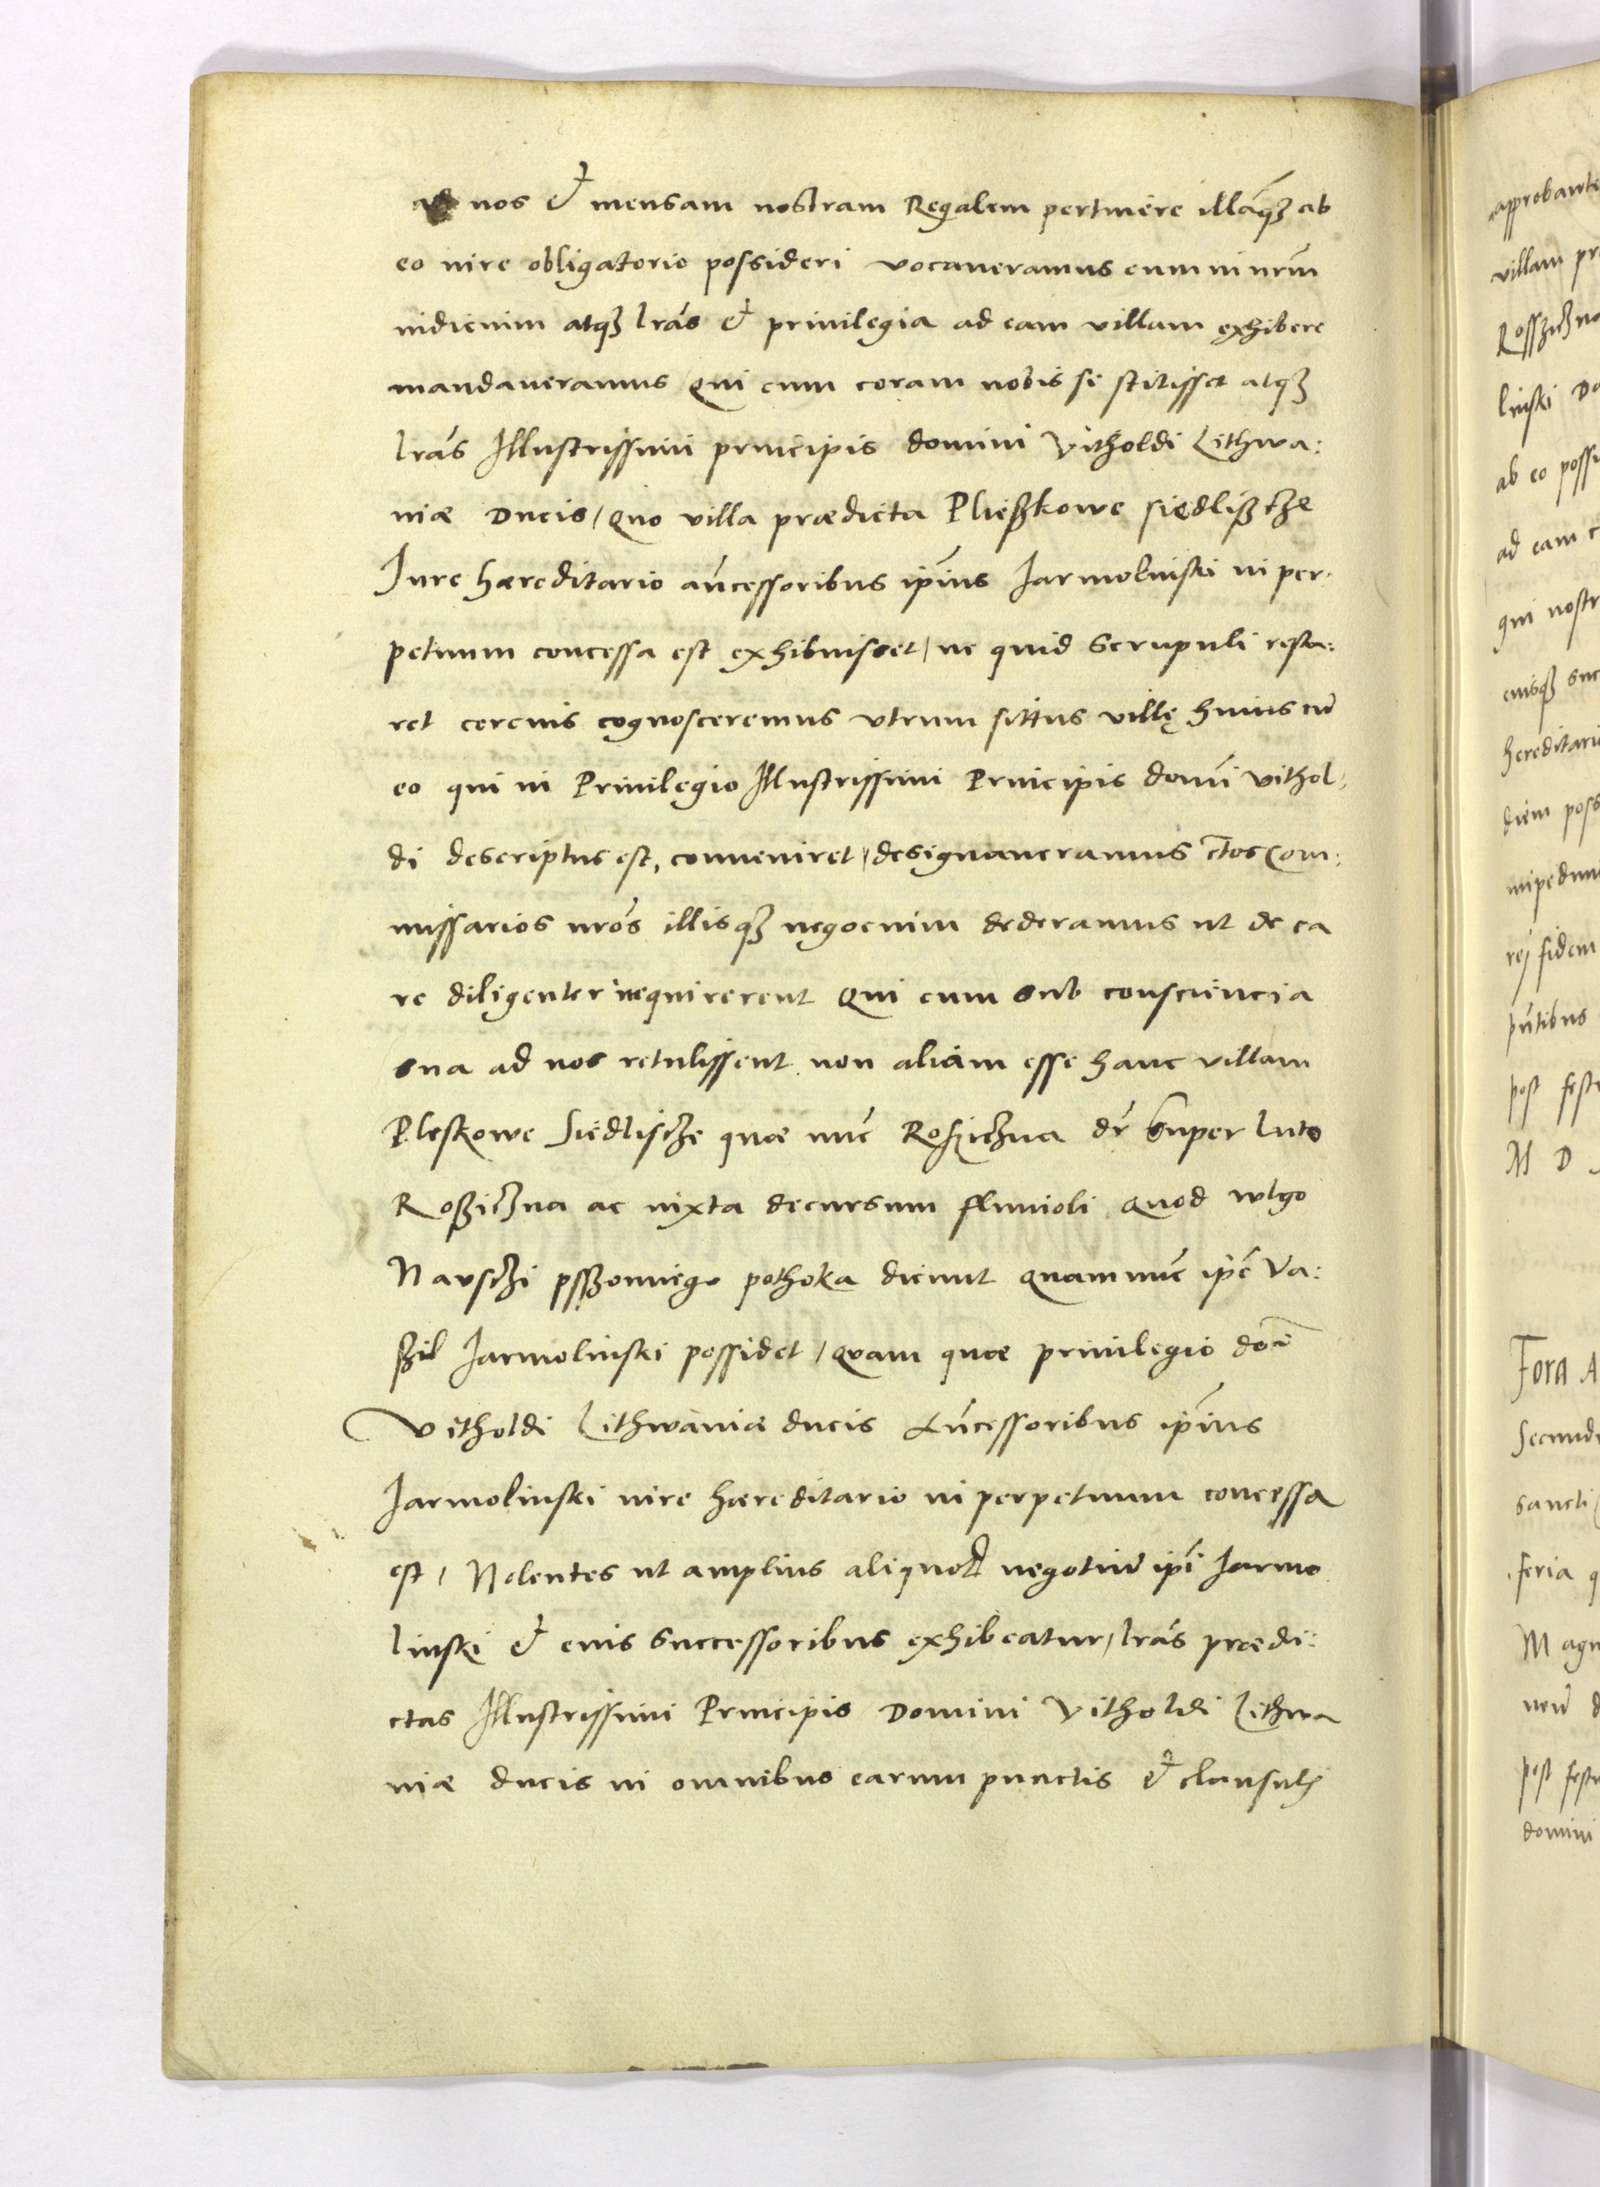 ad nos & mensam nostram Regalem pertinere illāqȝ ab
eo iure obligatorio possideri vocaueramus eum in nrm̄
iudicium atqȝ lrās & priuilegia ad eam villam exhibere
mandaueramus qui cum coram nobis se stitisset atqȝ
lrās Illustrissimi principis domini Vitholdi Lithwa:
niæ Ducis / quo villa prædicta Pließkowe siedlißcże
Iure hæreditario an̄cessoribus ip̄ius Iarmolinski in per:
petuum concessa est exhibuisset / ne quid scrupuli resta:
ret cerciusq cognosceremus vtrum sittus villę huius cū
eo qui in Priuilegio Illustrissimi Principis domī Vithol:
di descriptus est, conueniret / designaueramus c̄tos Com:
missarios nrōs illisqȝ negocium dederamus ut de ea
re diligenter inquirerent Qui cum sub consciencia
sua ad nos retulissent non aliam esse hanc villam
Pleskowe Siedliscże quæ nūc Roszicżna dr̄ super luto
Roßicżna ac iuxta decursum fluuioli quod wlgo
Navscżi psszonnego pothoka dicunt quam nūc ip̄e Va:
ßil Iarmolinski possidet / quam quæ priuilegio do͞i
Vitholdi Lithwaniæ ducis An̄cessoribus ip̄ius
Iarmolinski iure hæreditario in perpetuum concessa
est / Nolentes ut amplius aliquod negotiū ip̄i Iarmo
linski & eius successoribus exhibeatur / lrās prædi:
ctas Illustrissimi Principis Domini Vitholdi Lithwa
niæ ducis in omnibus earum punctis & clausulis
approbante
villam pr
Rosszicżna
linski Do
ab eo possi
ad eam
qui nostr
eiusqȝ suc
hereditari
diem poss
impedim
rej fidem
pn̄tibus
post fest
M D
Fora A
Secund
sancti
feria q
Magn
post fest
domini